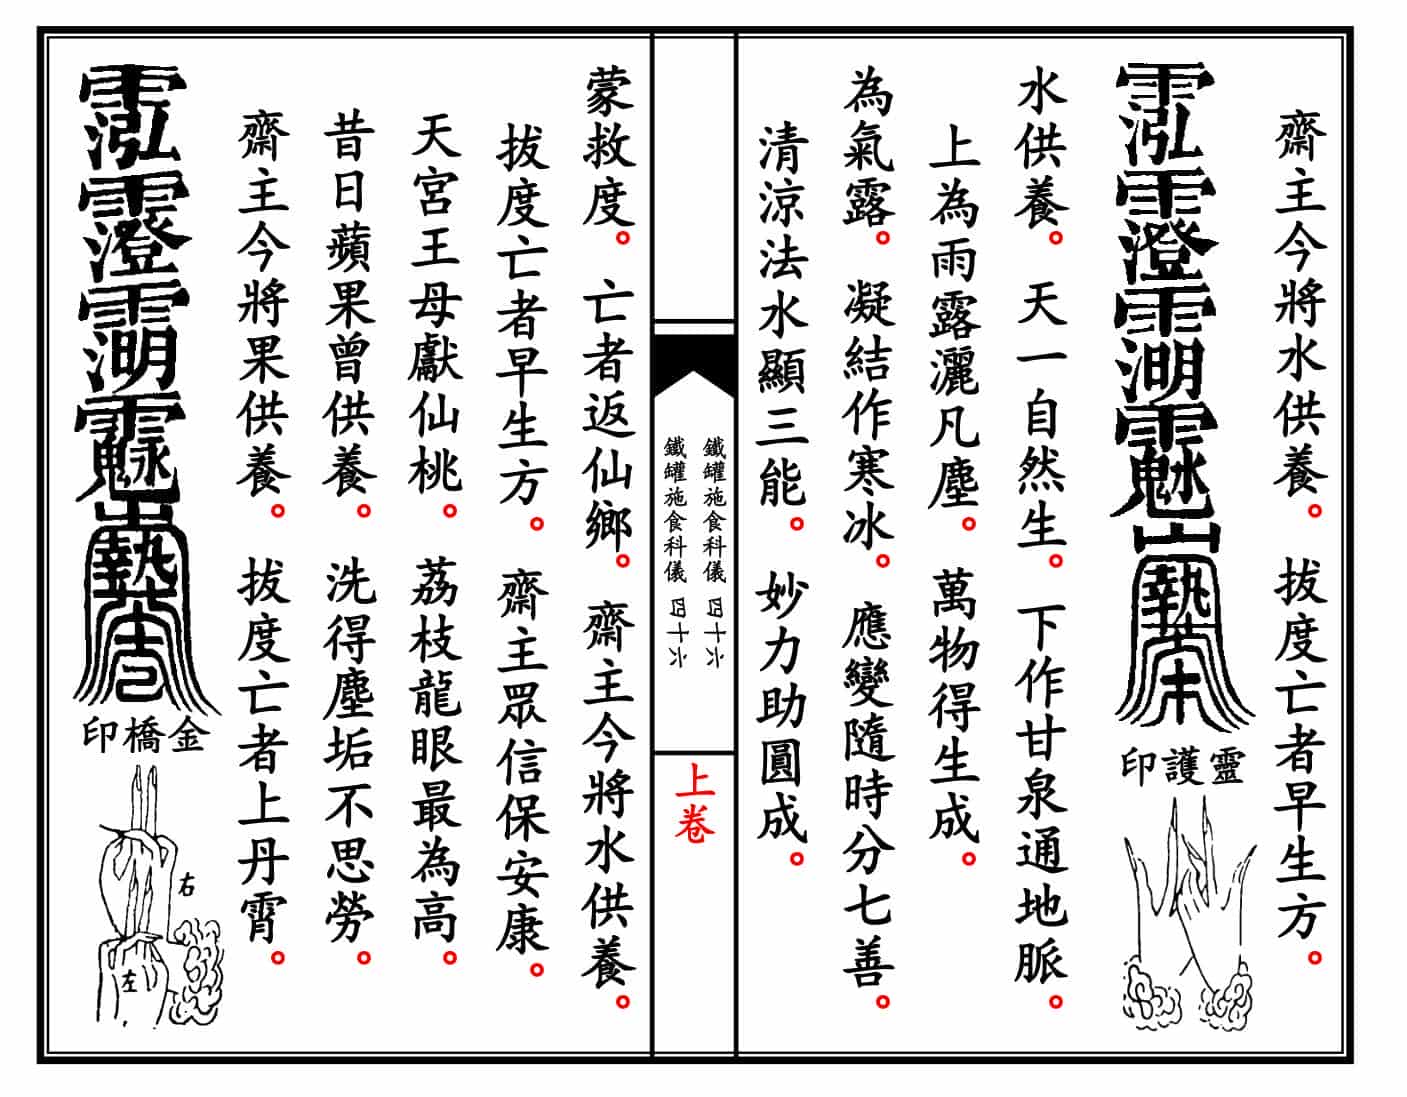 齋主今將水供養。 拔度亡者早生方。
靈護印
水供養。 天一自然生。 下作甘泉通地脈。
上為雨露灑凡塵。 萬物得生成。
為氣露。 凝結作寒冰。 應變隨時分七善。
清涼法水顯三能。 妙力助圓成。
鐵罐施食科儀 四十六
上卷
鐵罐施食科儀 四十六
蒙救度。 亡者返仙鄉。 齋主今將水供養。
拔度亡者早生方。 齋主眾信保安康。
天宮王母獻仙桃。 荔枝龍眼最為高。
昔日蘋果曾供養。 洗得塵垢不思勞。
齋主今將果供養。 拔度亡者上丹霄。
金橋印
右
左